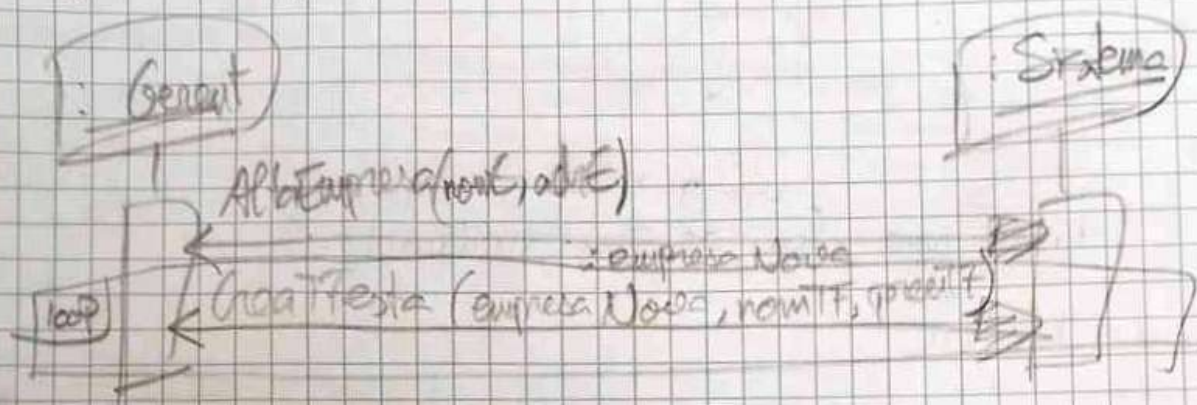 : Gerent
: Sistema
AltaEmpresa(nomE, adrE)
: empresa Nova
loop
CreaTFesta (empresa Nova, nomTF, preuTF)